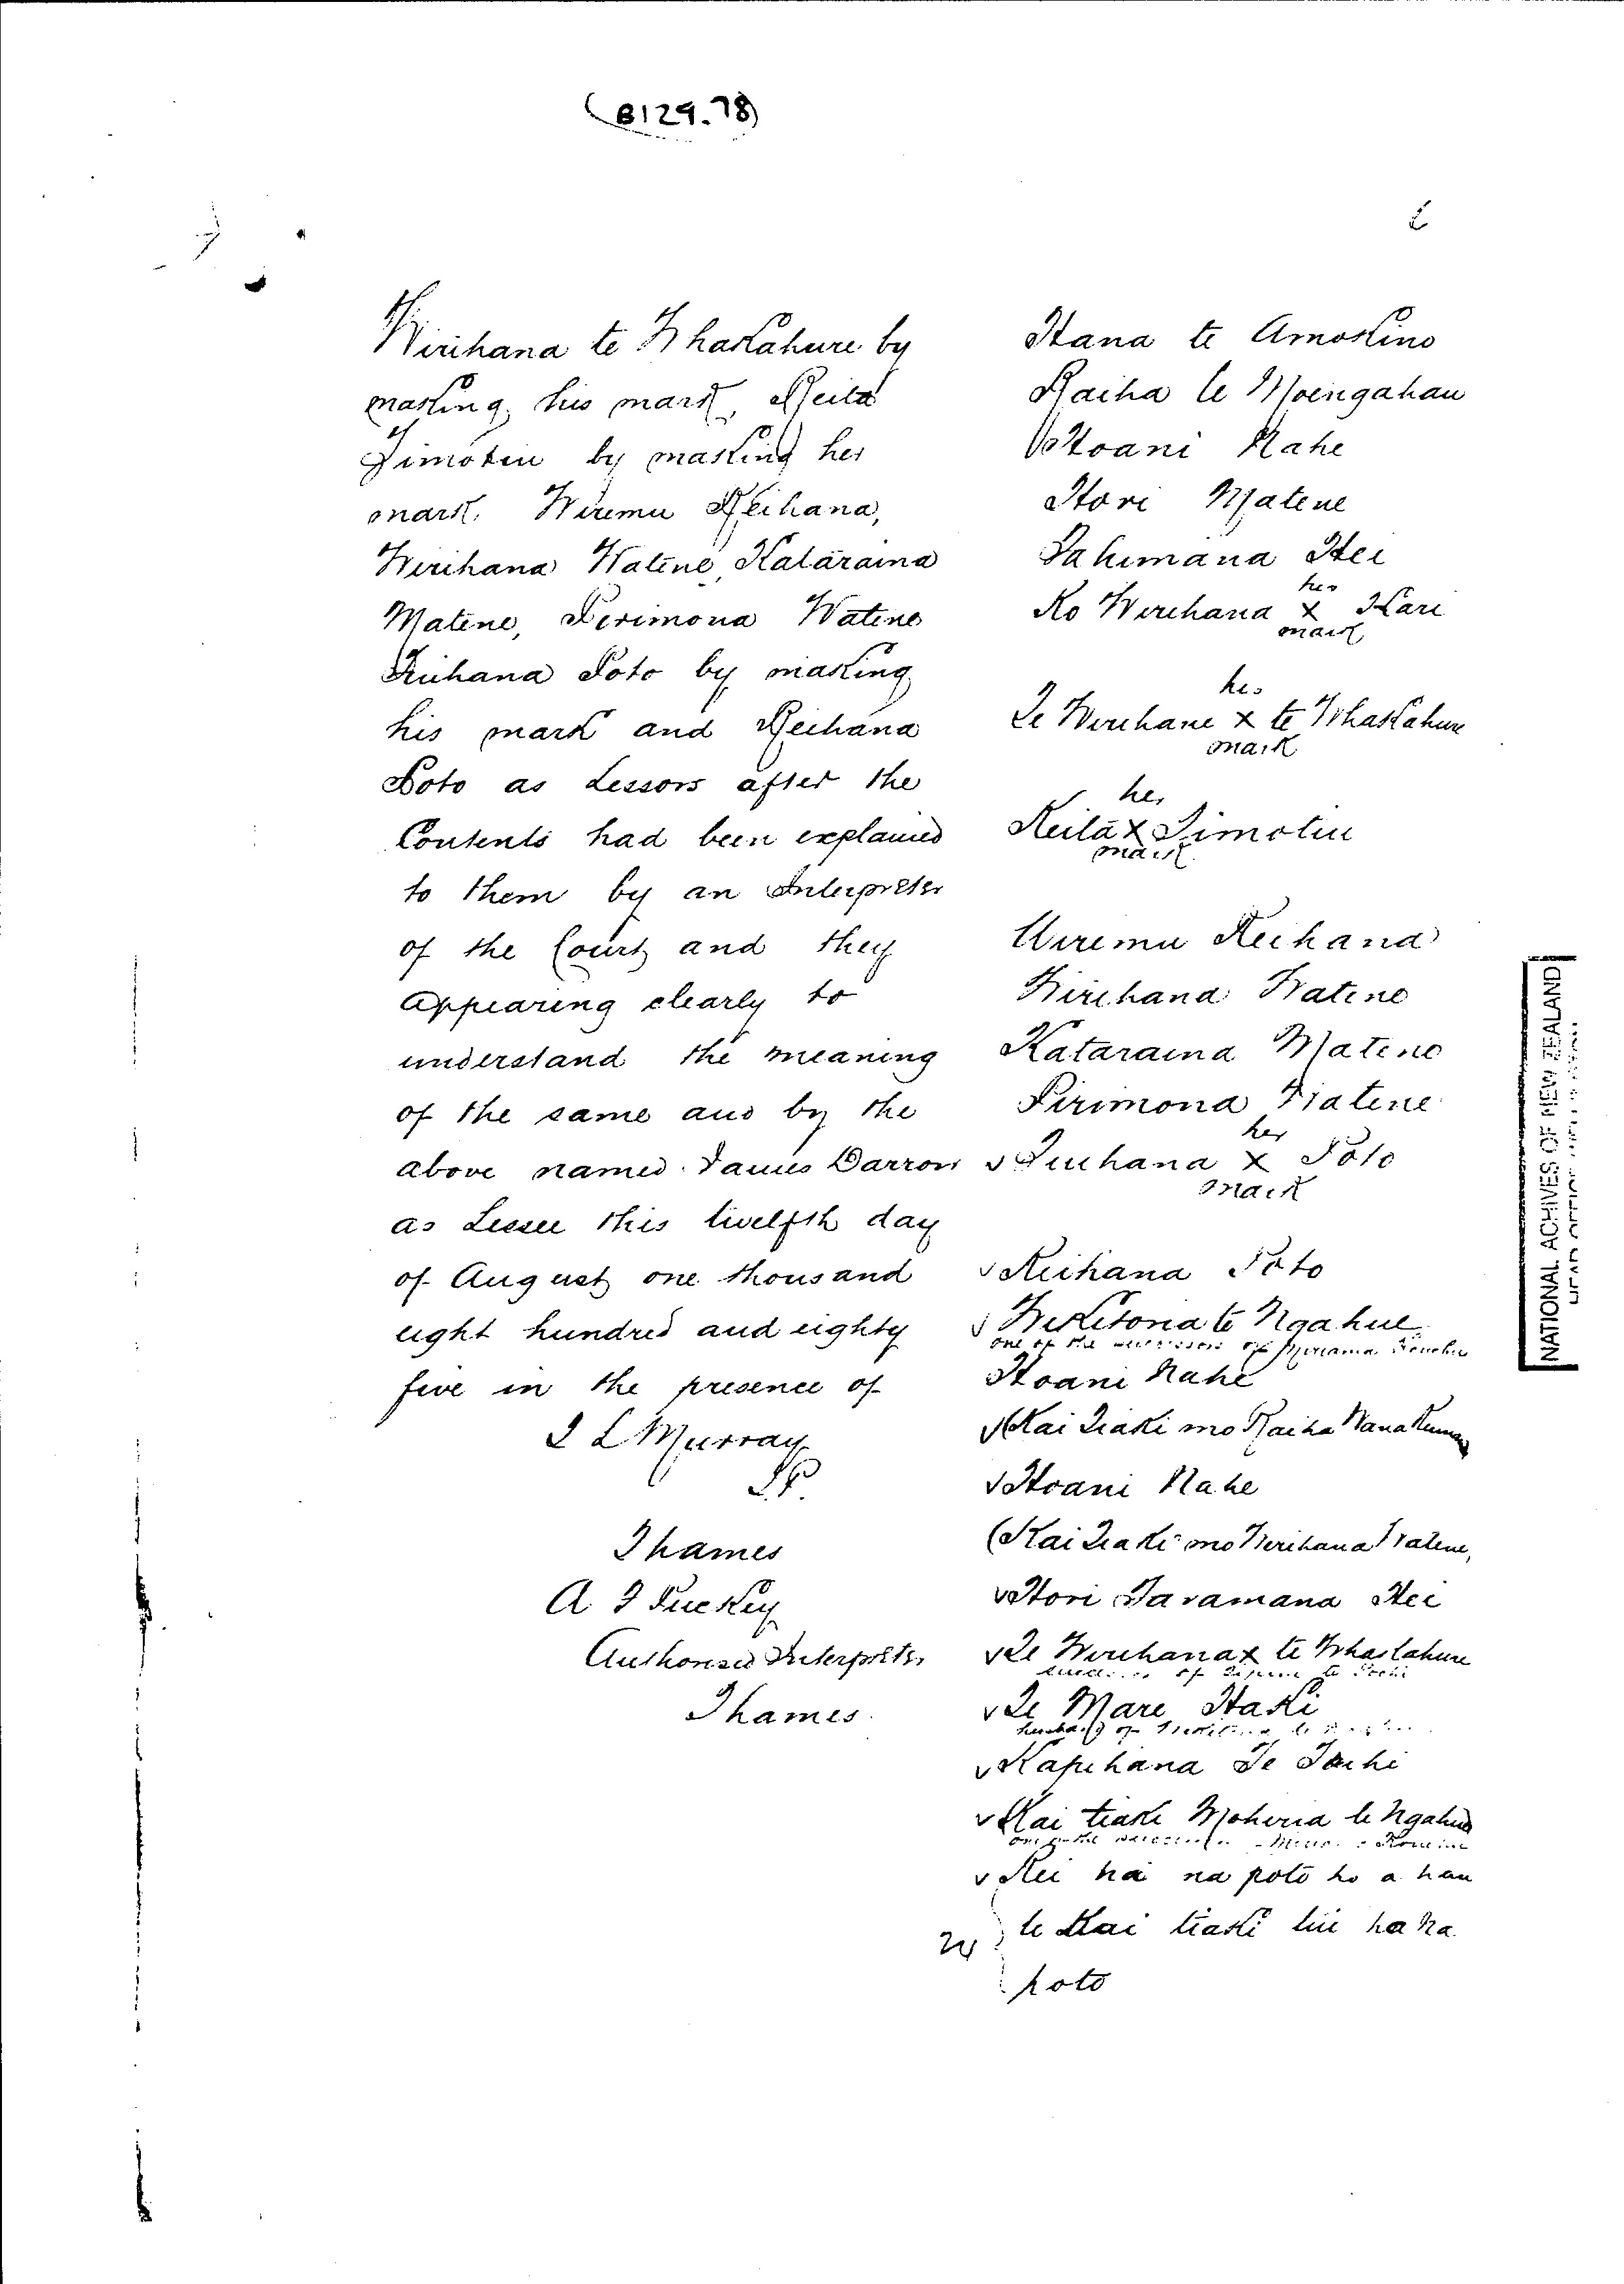 (B129.78)
Wirihana te Whakahure by
making his mark, Reita
Timotiu by making her
mark. Wiremu Reihana,
Wirihana Watene, Kataraina
Matene, Pirimona Watene
Riuhana Poto by making
his mark and Reihana
Poto as Lessors after the
Contents had been explained
to them by an Interpreter
of the Court and they
Appearing clearly to
understand the meaning
of the same and by the
above named James Darrow
as Lessee this twelfth day
of August one thousand
eight hundred and eighty
five in the presence of
J L Murray
J.P.
Thames
A J Puckey
Authorised Interpreter
Thames.
Hana te Amohino
Raiha te Moengahau
Hoani Nahe
Hori Matene
Tahimana Hei
her
Ko Wirihana x Kari
mark
his
Te Wirihana x te Whakahure
mark
her
Reita x Timotiu
mark
Wiremu Reihana
Wirihana Watene
Kataraina Matene
Pirimona Watene
her
Riuhana x Poto
mark
Reihana Poto
Wikitona te Ngahue
one of the successors of
Hoani Nahe
(Kai Tiaki mo Raiha
Hoani Nahe
(Kai Tiaki mo Wirihana Watene,
Hori Taramana Hei
Te Wirihana x te Whakahure
of
Te Mare Haki
husband of
Kapihana Te Tuhi
Kai tiaki Moheria te Ngahue
one of the
Rei ha na poto ho a hau
te Kai tiaki
poto
NATIONAL ACHIVES OF NEW ZEALAND